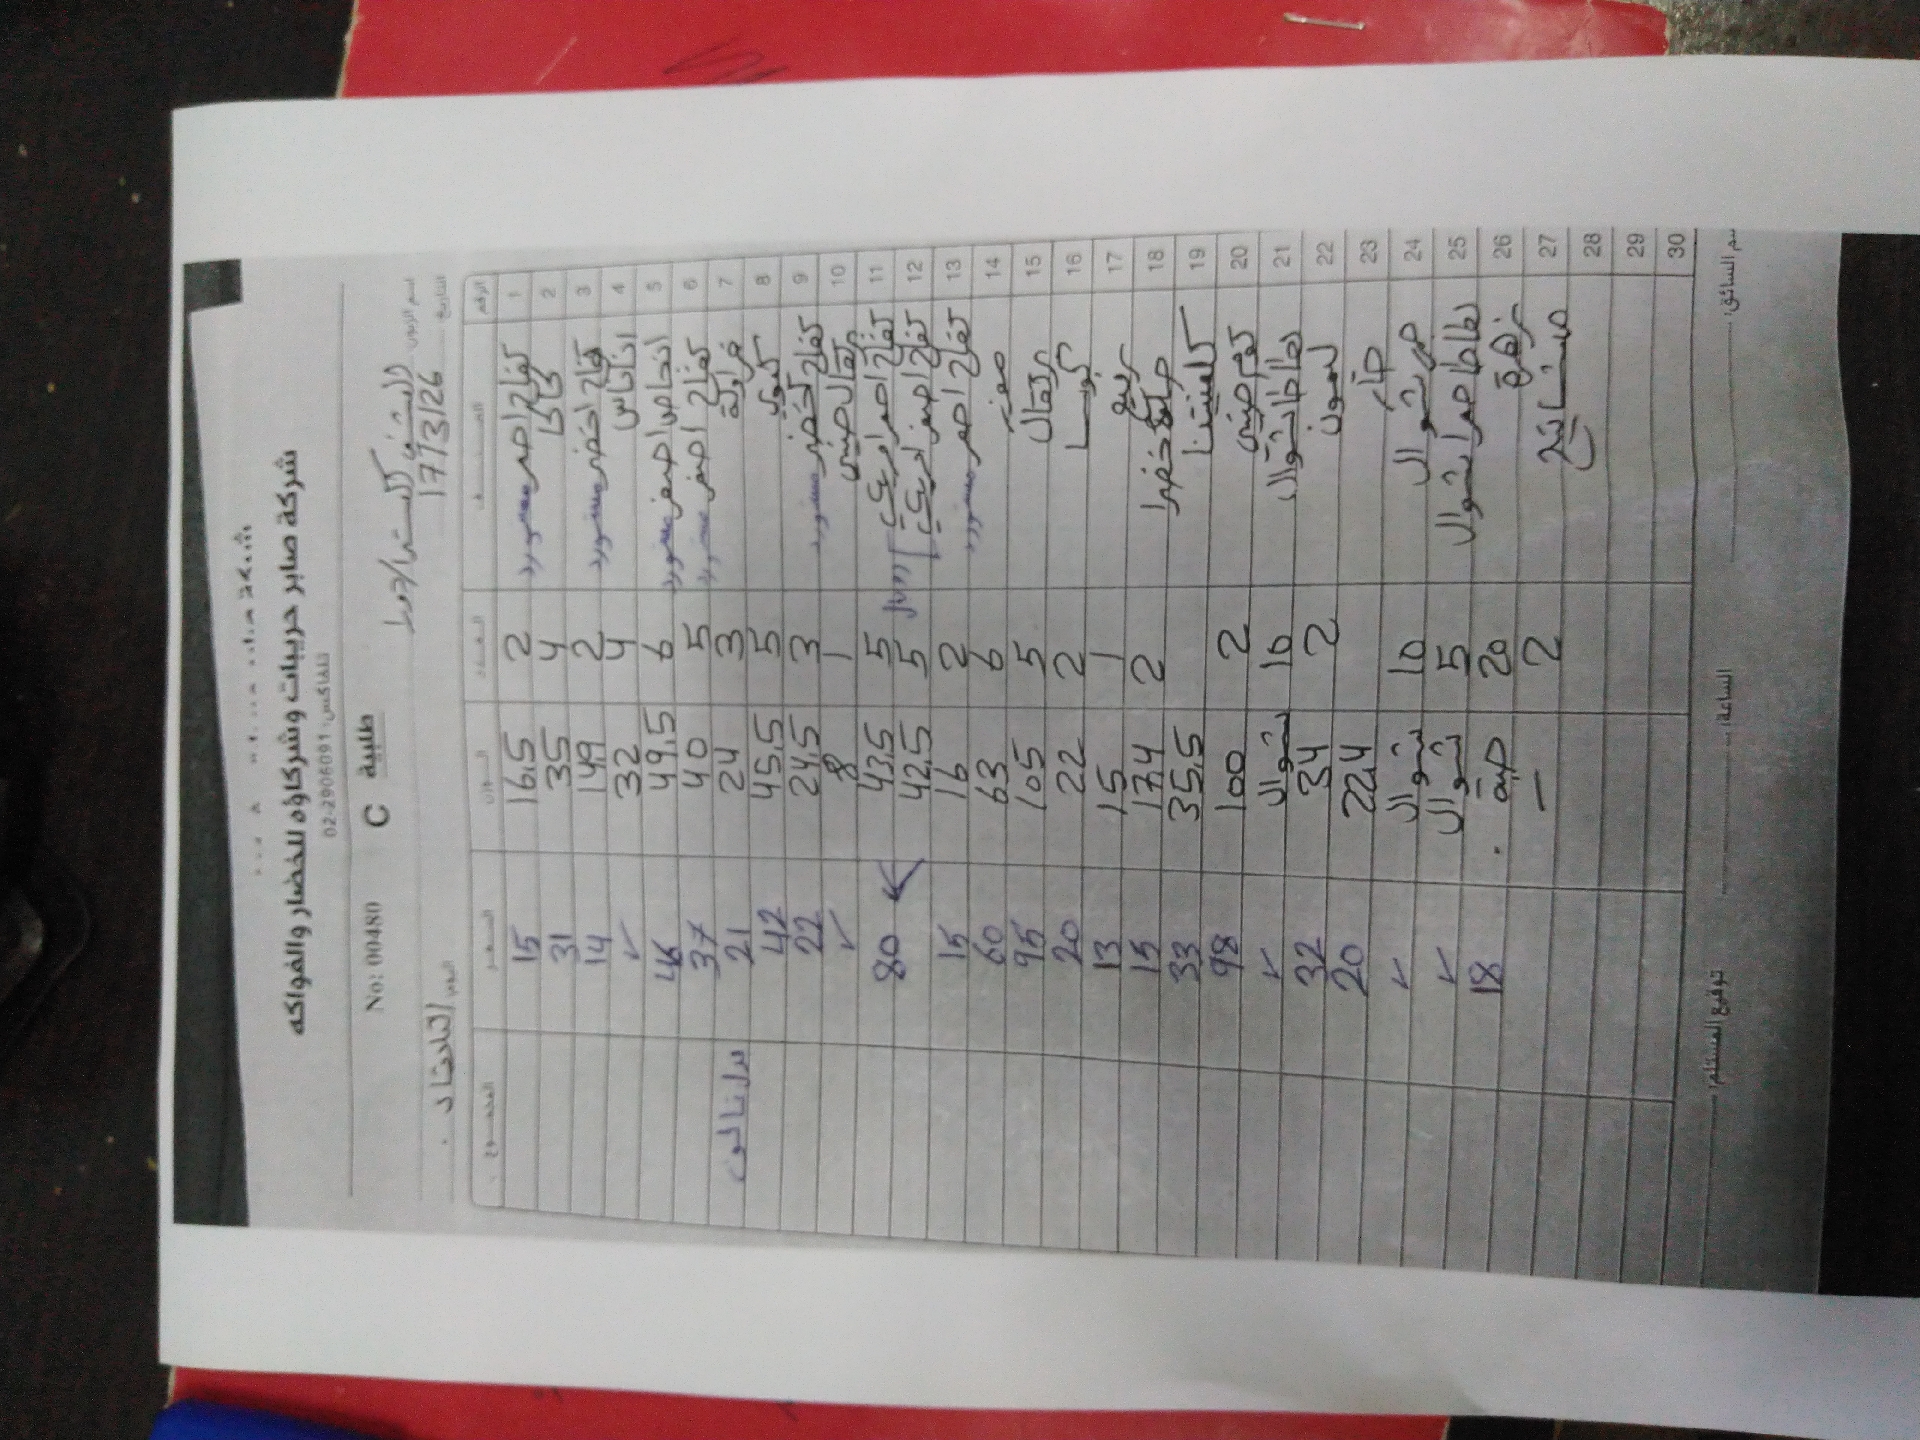 شركة صابر حريبات وشركاؤه للخضار والفواكه
تلفاكس: 02-2906091
No: 00480 C طلبية
اسم الزبون
التاريخ 17/3/26
الرقم الصنف العدد الوزن السعر المجموع
1 تفاح احمر مستورد 2 16.5 15
2 كاكا 4 35 31
3 تفاح اخضر مستورد 2 14.9 14
4 اناناس 4 32 ✓
5 انجاص اصفر مستورد 6 49.5 46
6 تفاح اصفر مستورد 5 40 37
7 فراولة 3 24 21
8 5 45.5 42
9 تفاح اخضر مستورد 3 24.5 22
10 برتقال صيني 1 8 ✓
11 تفاح احمر 5 43.5 80
12 تفاح اصفر 5 42.5
13 تفاح احمر مستورد 2 16 15
14 موز 6 63 60
15 برتقال 5 105 95
16 2 22 20
17 1 15 13
18 خضرا 2 17.4 15
19 كلمنتينا 35.5 33
20 ثوم صيني 2 100 98
21 بطاطا شوال 10 شوال ✓
22 ليمون 2 34 32
23 22.4 20
24 جزر شوال 10 شوال ✓
25 بطاطا حمرا شوال 5 شوال ✓
26 زهرة 20 حبة 18
27 2 –
28
29
30
اسم السائق:
الساعة:
توقيع المستلم: